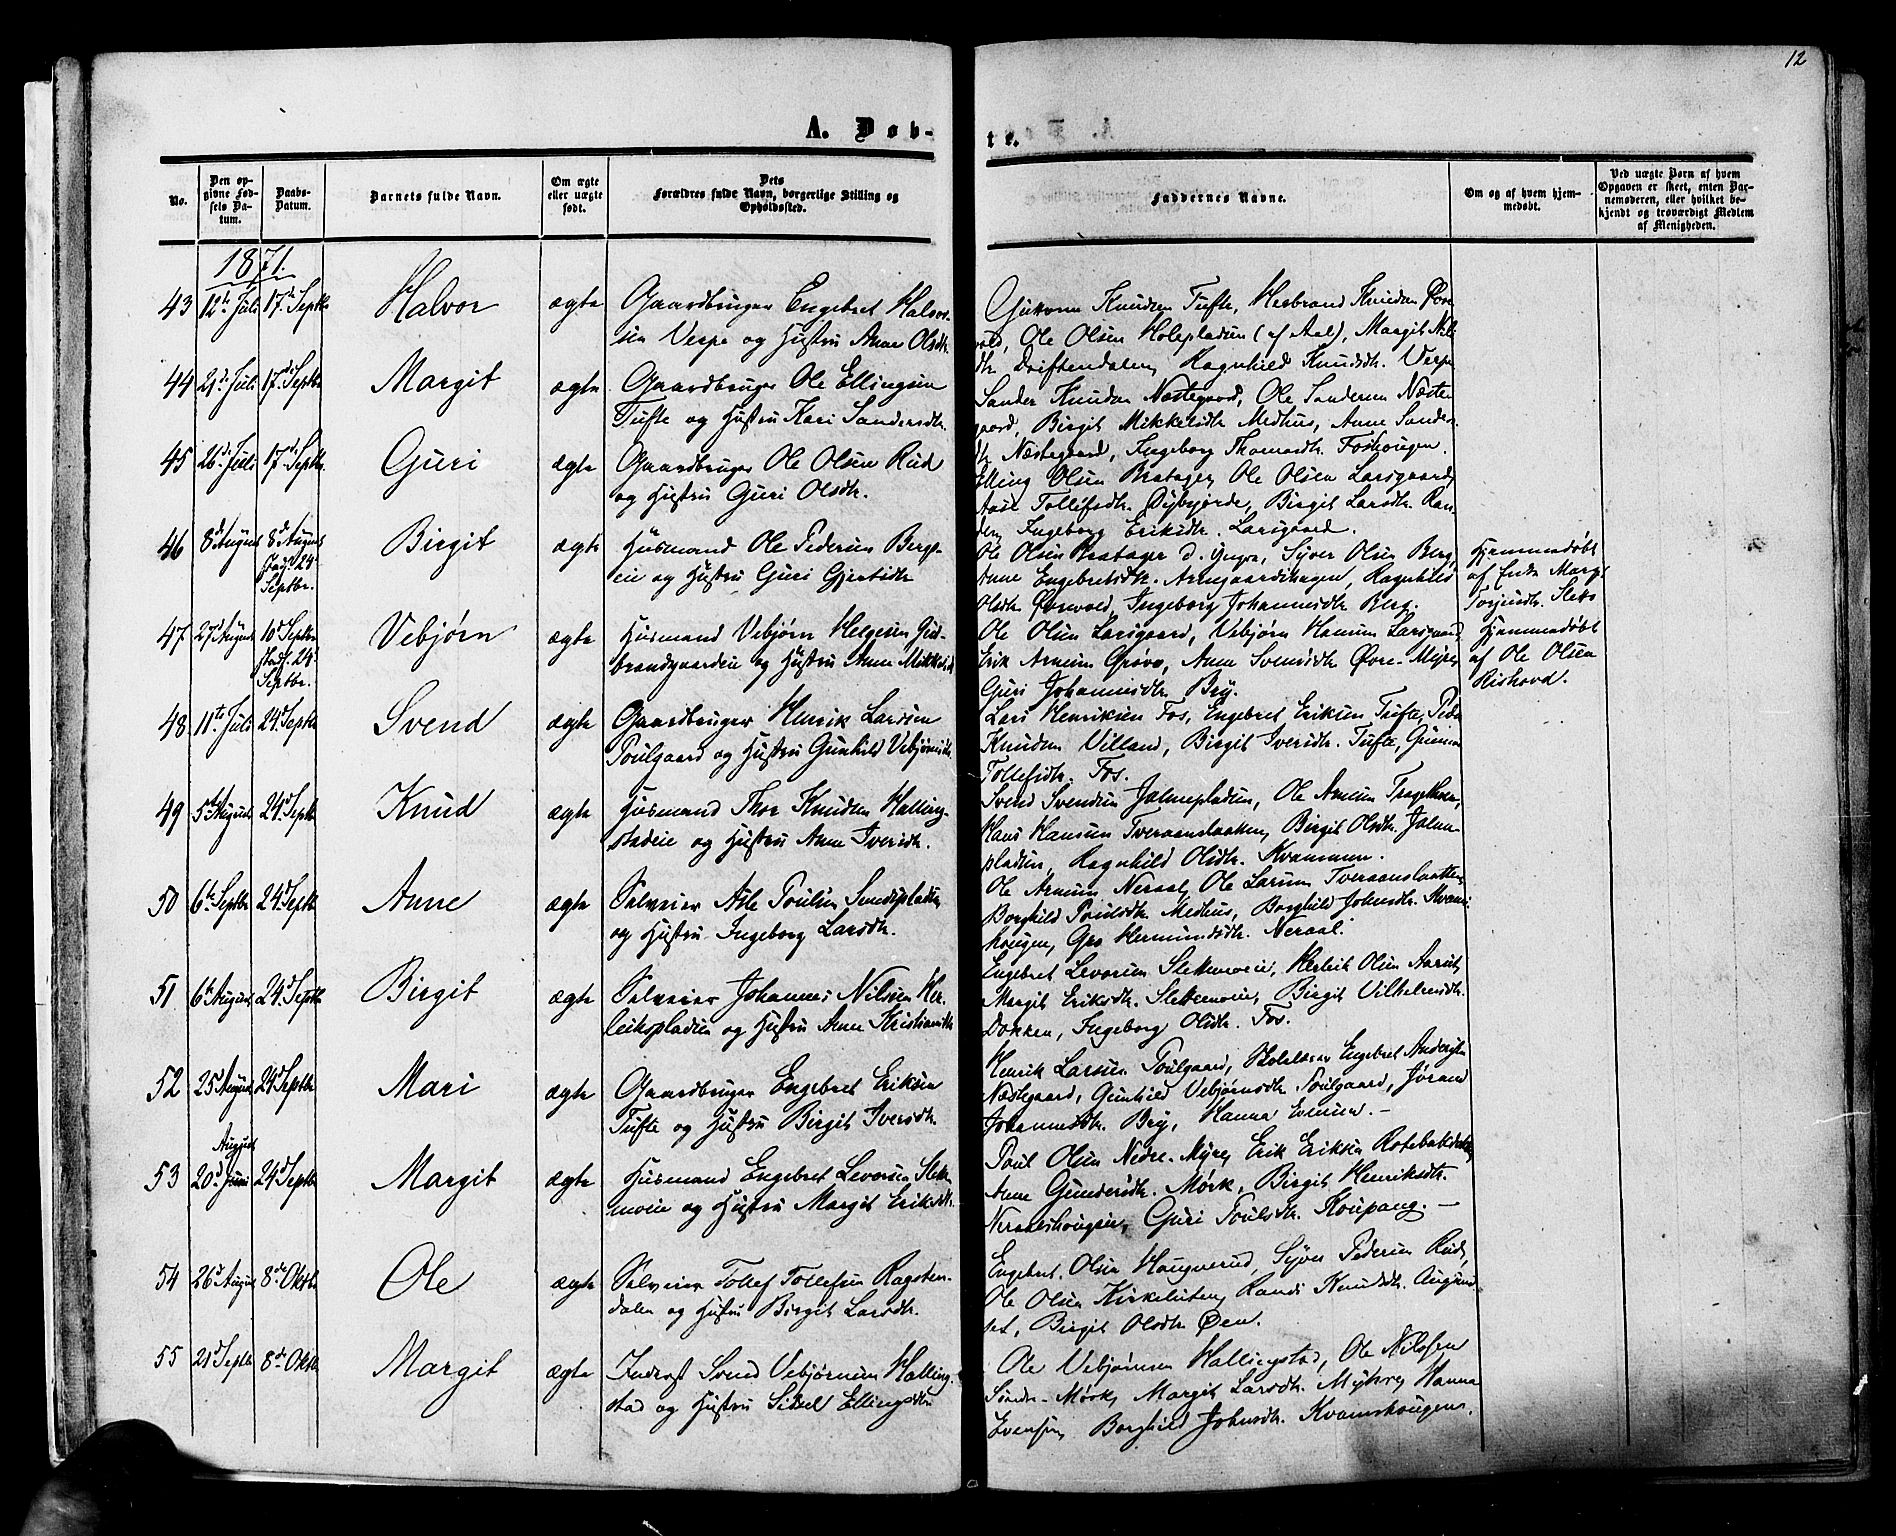 12
A. Døb-
te.
No.
Den op-
givne Fød-
sels Da-
tum.
Daabs-
Datum.
Barnets fulde Navn.
Om ægte
eller uægte
født.
Dets
Forældres fulde Navn, borgerlige Stilling og
Opholdssted.
Faddernes Navne.
Om og af hvem hjem-
medøbt.
Ved uægte Børn af hvem
Opgaven er skeet, enten Bar-
nemoderen, eller hvilket be-
kjendt og troværdigt Medlem
af Menigheden.
1871.
43 12te Juli 17de Septbr Halvor ægte Gaardbruger Engebret Halvor-
sen Vespe og Hustru Anne Olsdtr.
Guttorm Knudsen Tufte, Herbrand Knudsen Øvre-
vold, Ole Olsen Holepladsen (af Aal), Margit Nils-
dtr. Driftendalen, Ragnhild Knudsdtr. Vespe
44 21de Juli 17de Septbr Margit ægte Gaardbruger Ole Ellingsen
Tufte og Hustru Kari Sandersdtr.
Sander Knudsen Næstegaard, Ole Sandersen Næste-
gaard, Birgit Mikkelsdtr Medhus, Anne Sanders-
dtr Næstegaard, Ingeborg Thomasdtr. Foshougen.
45 26de Juli 17de Septbr Guri ægte Gaardbruger Ole Olsen Rud
og Hustru Guri Olsdtr.
Elling Olsen Bratager, Ole Olsen Larsgaard,
Aase Tollefsdtr. Dybsjorde, Birgit Larsdtr. Ran-
den, Ingeborg Eriksdtr. Larsgaard.
46 8de August 8de August
stadf. 24de
Septbr. Birgit ægte Husmand Ole Pedersen Berg-
eie og Hustru Guri Gjertsdtr
Ole Olsen Bratager d. yngre, Syver Olsen Berg,
Anne Engebretsdtr. Arnegaardshagen, Ragnhild
Olsdtr. Ørevold, Ingeborg Johannesdtr Berg.
Hjemmedøbt
af Enke Margit
Torjusdtr. Sletto
47 27de August 10de Septbr
stadf. 24de
Septbr. Vebjørn ægte Husmand Vebjørn Helgesen Gul-
brandsgaardeie og Hustru Anne Mikkelsdtr
Ole Olsen Larsgaard, Vebjørn Hansen Larsgaard,
Erik Arnesen Grøvo, Anne Svensdtr Øvre-Myre,
Guri Johannesdtr Bry.
Hjemmedøbt
af Ole Olsen
Rishovd.
48 11te Juli 24de Septbr Svend ægte Gaardbruger Henrik Larsen
Poulgaard og Hustru Gunhild Vebjørnsdtr.
Lars Henriksen Fos, Engebret Eriksen Tufte, Peder
Knudsen Villand, Birgit Iversdtr. Tufte, Gunvor
Tollefsdtr. Fos.
49 5te August 24de Septbr Knud ægte Husmand Thor Knudsen Halling-
stadeie og Hustru Anne Iversdtr.
Svend Svendsen Jalmepladsen, Ole Arnesen Tragethon,
Hans Hansen Tveraanslaatten, Birgit Olsdtr. Jalme-
pladsen, Ragnhild Olsdtr. Kvammen.
50 6te Septbr 24de Septbr Anne ægte Selveier Asle Poulsen Svendspladsen
og Hustru Ingeborg Larsdtr.
Ole Arnesen Neraal, Ole Larsen Tveraanslaatten,
Borghild Poulsdtr. Medhus, Borghild Johnsdtr. Kvams-
hougen, Gro Hermundsdtr. Neraal.
51 6te August 24de Septbr Birgit ægte Selveier Johannes Nilsen Her-
leikspladsen og Hustru Anne Kristiansdtr
Engebret Levorsen Slettemoeie, Herleik Olsen Aasrud,
Margit Eriksdtr. Slettemoeie, Birgit Vilhelmsdtr.
Dokken, Ingeborg Olsdtr. Fos.
52 25de August 24de Septbr Mari ægte Gaardbruger Engebret Eriksen
Tufte og Hustru Birgit Iversdtr.
Henrik Larsen Poulgaard, Skolelærer Engebret Andersen
Næstegaard, Gunhild Vebjørnsdtr Poulgaard, Jørand
Johannesdtr. Bry, Hanna Evensen. –
August
53 20de Juni 24de Septbr Margit ægte Husmand Engebret Levorsen Slette-
moeie og Hustru Margit Eriksdtr.
Poul Olsen Nedre-Myre, Erik Eriksen Rotebakkken,
Anne Gundersdtr. Mørk, Birgit Henriksdtr.
Neraalshougen, Guri Poulsdtr. Koupang. –
54 26de August 8de Oktbr Ole ægte Selveier Tollef Tollefsen Rogsten-
dalen og Hustru Birgit Larsdtr.
Engebret Olsen Haugerud, Syver Pedersen Rud,
Ole Olsen Kirkeluten, Randi Knudsdtr. Augun-
set, Birgit Olsdtr Øen.
55 21de Septbr 8de Oktbr Margit ægte Inderst Svend Vebjørnsen Halling-
stad og Hustru Sidsel Ellingsdtr
Ole Vebjørnsen Hallingstad, Ole Nilssen
Søndre-Mørk, Margit Larsdtr. Myhre, Hanna
Evensen, Borghild Johnsdtr. Kvamshougen.